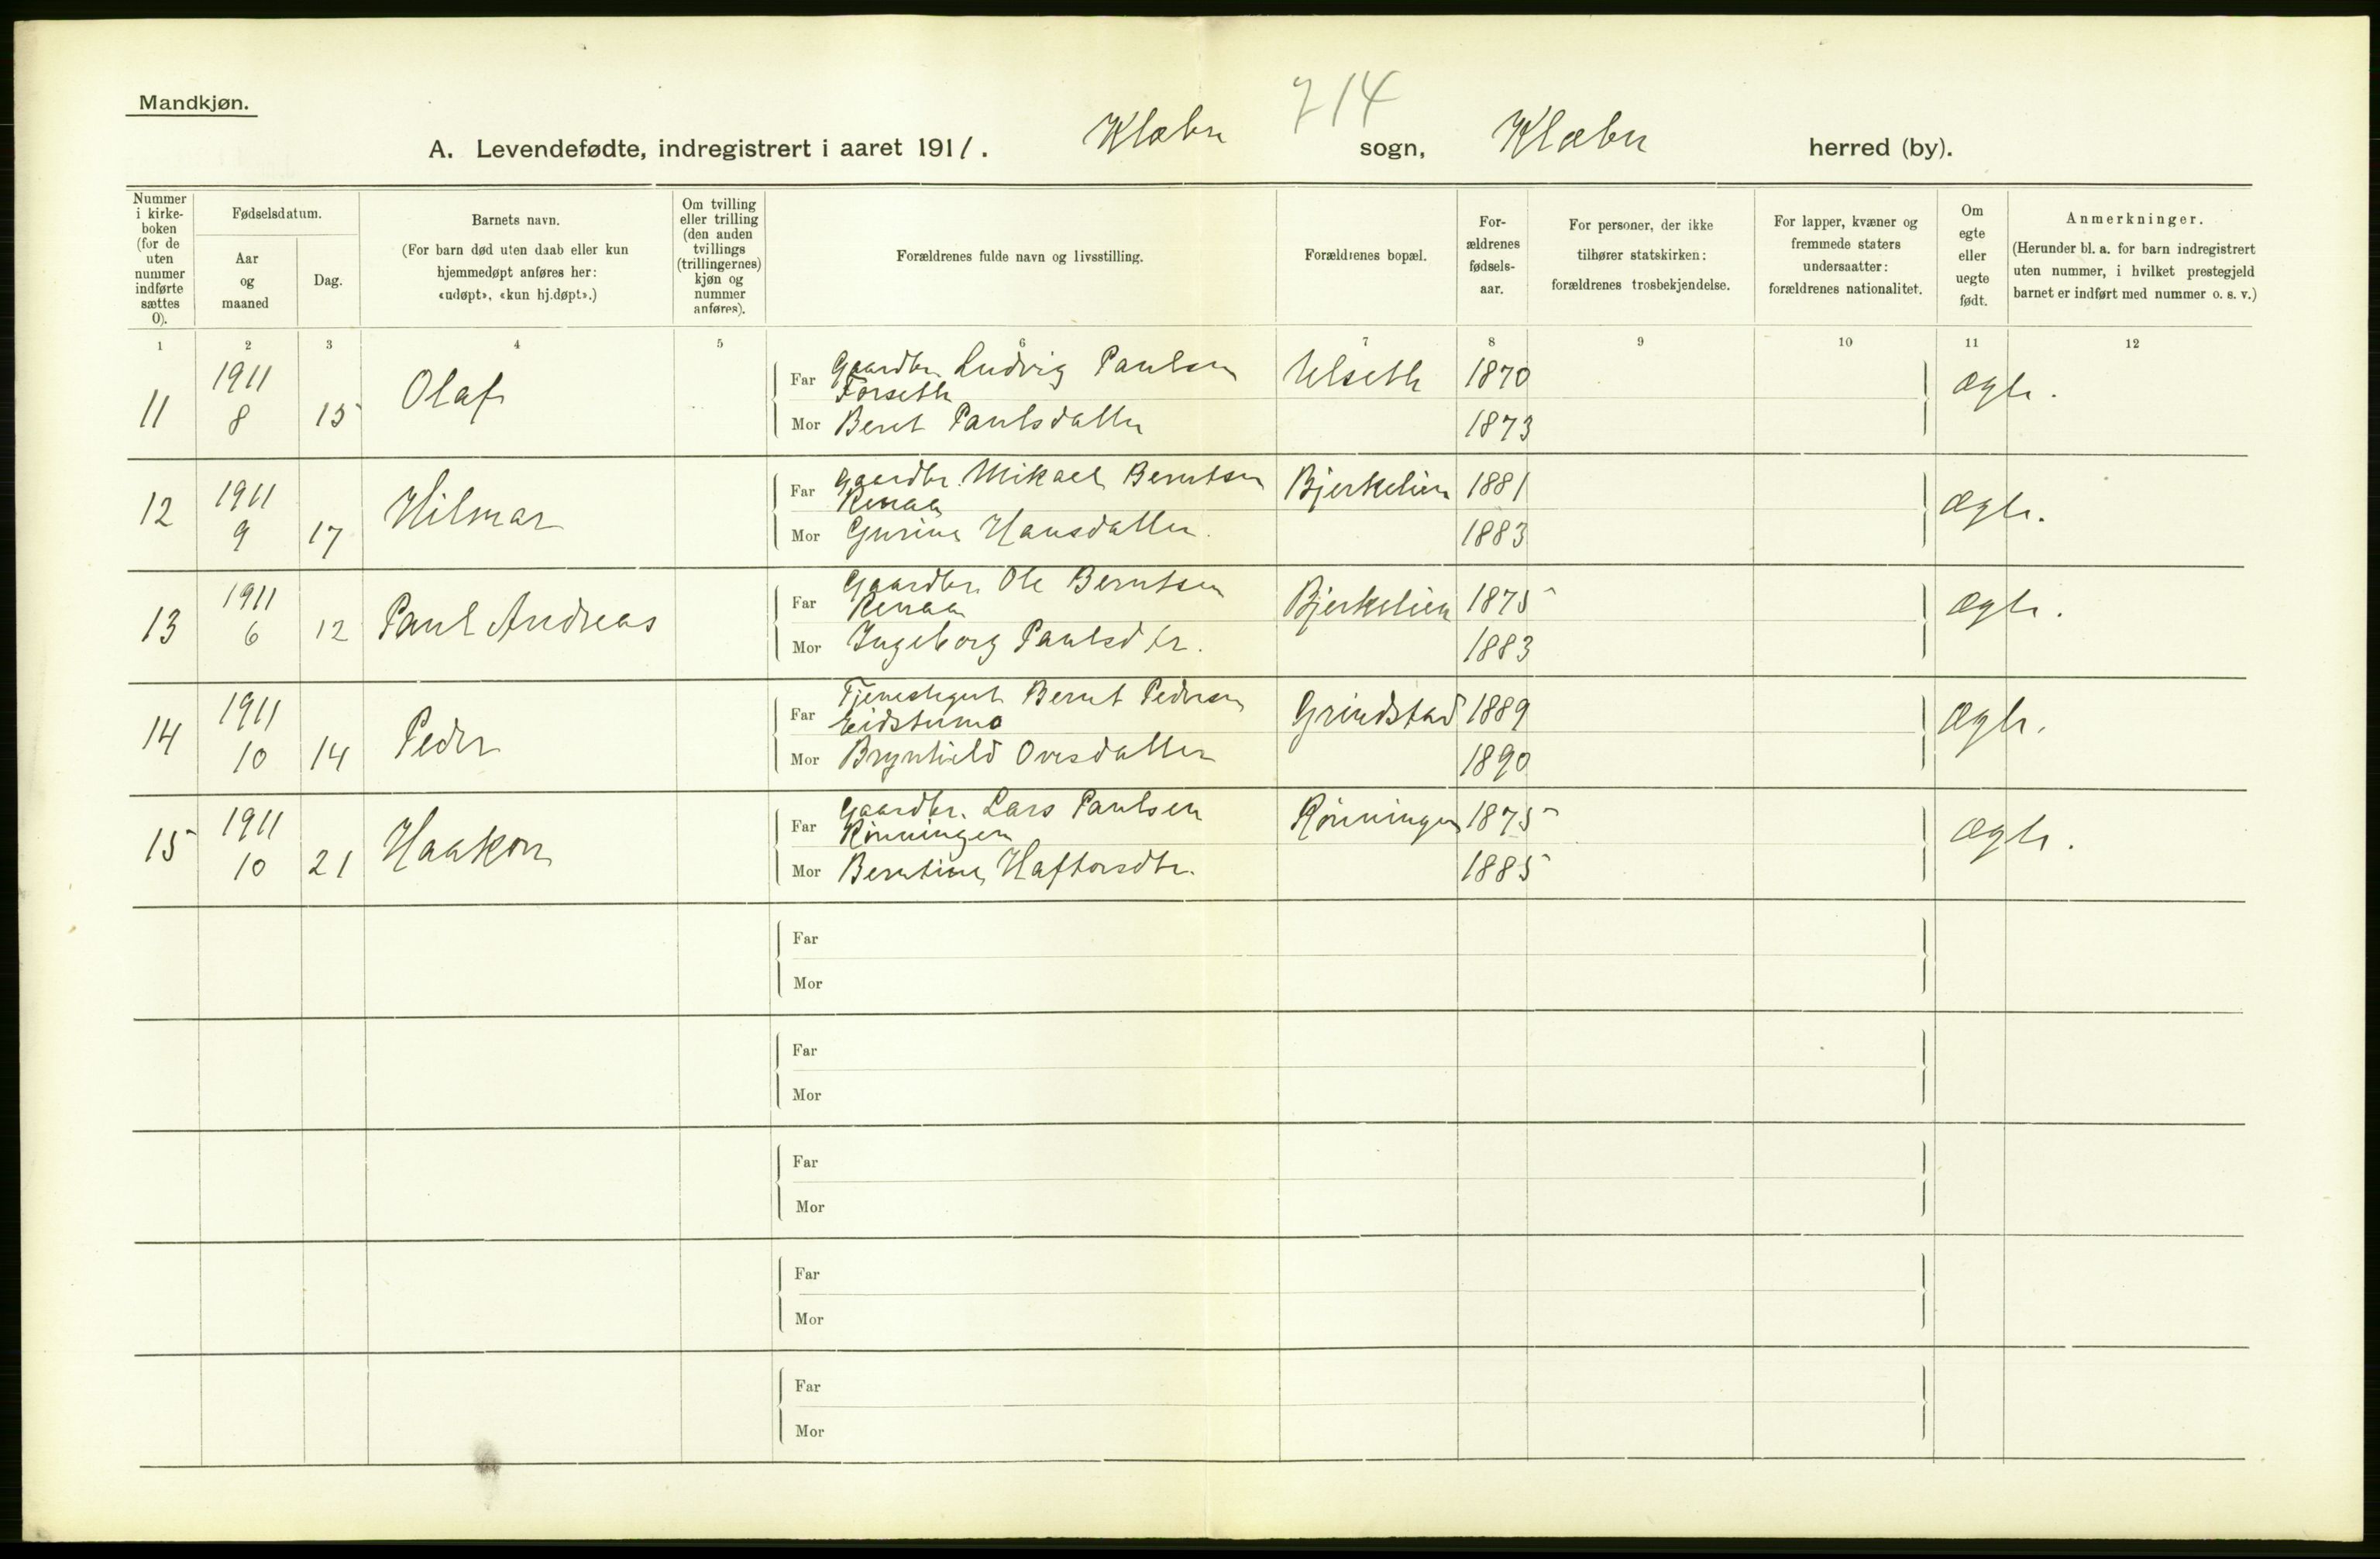 Mandkjøn.
714
A. Levendefødte, indregistrert i aaret 1911. Klæbu sogn, Klæbu herred (by).
Nummer i kirke-boken (for de uten nummer indførte sættes 0).
Fødselsdatum.
Aar og maaned
Dag.
Barnets navn.
(For barn død uten daab eller kun
hjemmedøpt anføres her:
«udøpt», «kun hj.døpt».)
Om tvilling
eller trilling
(den anden
tvillings
(trillingernes)
kjøn og
nummer
anføres).
Forældrenes fulde navn og livsstilling.
Forældrenes bopæl.
For-
ældrenes
fødsels-
aar.
For personer, der ikke
tilhører statskirken:
forældrenes trosbekjendelse.
For lapper, kvæner og
fremmede staters
undersaatter:
forældrenes nationalitet.
Om
egte
eller
uegte
født.
Anmerkninger.
(Herunder bl. a. for barn indregistrert
uten nummer, i hvilket prestegjeld
barnet er indført med nummer o. s. v.)
1 2 3 4 5 6 7 8 9 10 11 12
11 1911 8 15 Olaf
Far Gaardbr. Ludvig Paulsen Forseth Ulseth 1870 ægte.
Mor Beret Paulsdatter 1873
12 1911 9 17 Hilmar
Far Gaardbr. Mikael Berntsen Renaa Bjerkelien 1881 Ægte.
Mor Gurine Hansdatter. 1883
13 1911 6 12 Paul Andreas
Far Gaardbr. Ole Berntsen Renaa Bjerkelien 1875 ægte.
Mor Ingeborg Paulsdtr. 1883
14 1911 10 14 Peder
Far Tjenestegut Bernt Pedersen Eidstumo Grindstad 1889 Ægte.
Mor Brynhild Ovesdatter 1890
15 1911 10 21 Haakon
Far Gaardbr. Lars Paulsen Rønningen Rønningen 1875 ægte.
Mor Berntine Haftorsdtr. 1885
Far
Mor
Far
Mor
Far
Mor
Far
Mor
Far
Mor